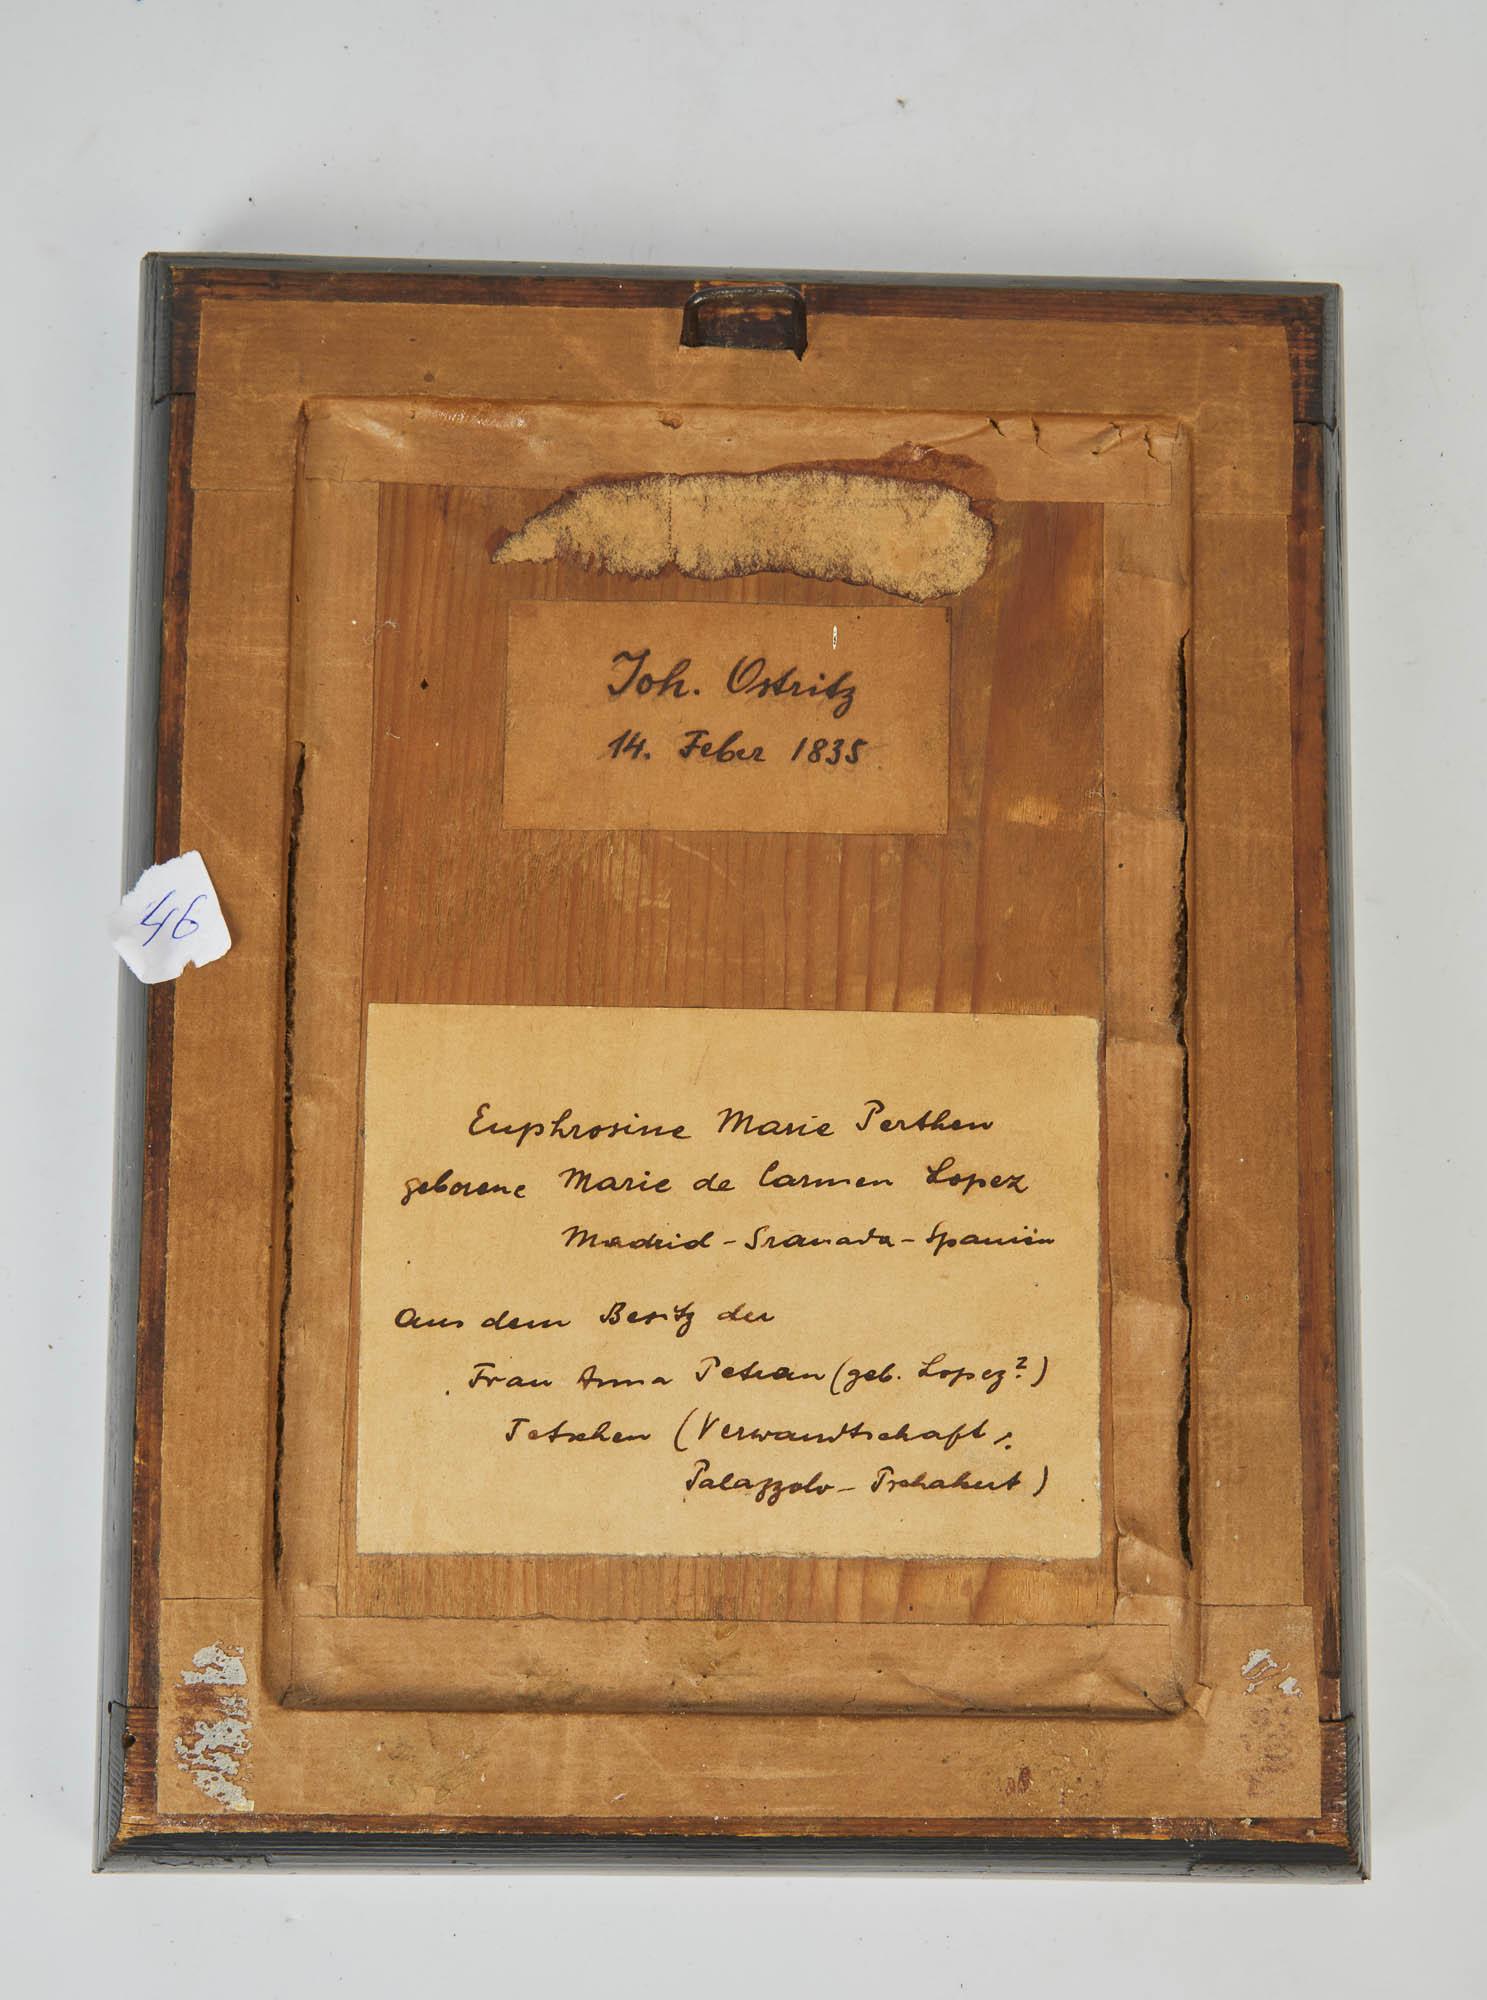 Joh. Ostritz
14. Feber 1835
46
Euphrosine Marie Perthen
geborene Marie de Carmen Lopez
Madrid - Granada - Spanien
Aus dem Besitz der
Frau Anna Petran (geb. Lopez?)
Tetschen (Verwandtschaft
Palazzolo -